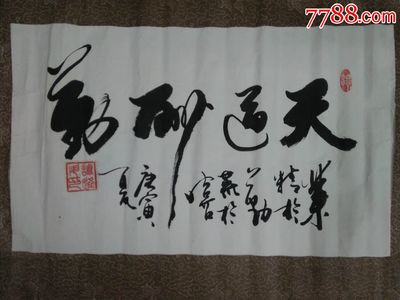 7788.com
天道酬勤
業
精於
勤
荒於
嬉
庚寅
夏